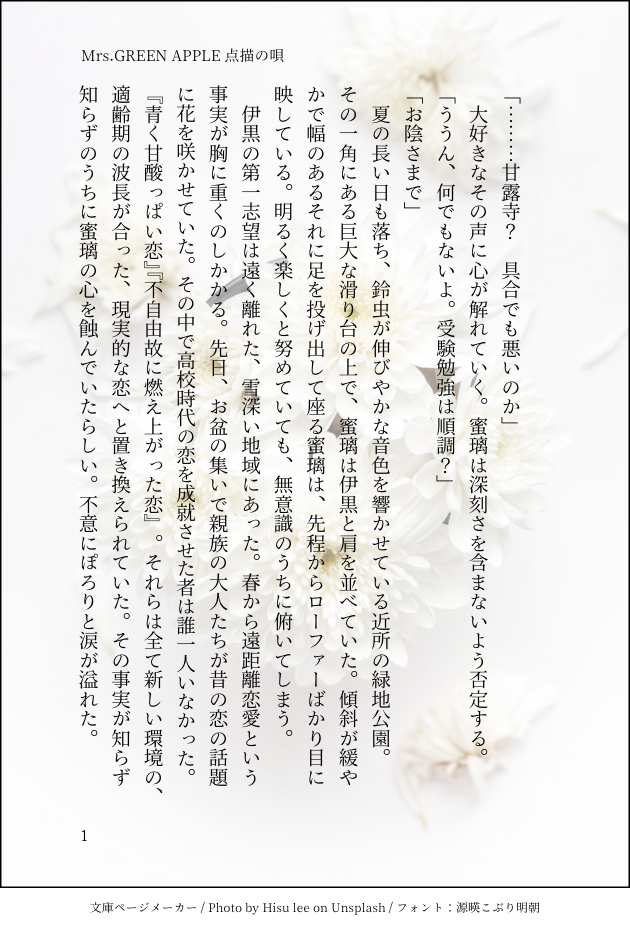 Mrs.GREEN APPLE 点描の唄
「………甘露寺?　具合でも悪いのか」
　大好きなその声に心が解れていく。蜜璃は深刻さを含まないよう否定する。
「ううん、何でもないよ。受験勉強は順調?」
「お陰さまで」
　夏の長い日も落ち、鈴虫が伸びやかな音色を響かせている近所の緑地公園。
その一角にある巨大な滑り台の上で、蜜璃は伊黒と肩を並べていた。傾斜が緩や
かで幅のあるそれに足を投げ出して座る蜜璃は、先程からローファーばかり目に
映している。明るく楽しくと努めていても、無意識のうちに俯いてしまう。
　伊黒の第一志望は遠く離れた、雪深い地域にあった。春から遠距離恋愛という
事実が胸に重くのしかかる。先日、お盆の集いで親族の大人たちが昔の恋の話題
に花を咲かせていた。その中で高校時代の恋を成就させた者は誰一人いなかった。
『青く甘酸っぱい恋』『不自由故に燃え上がった恋』。それらは全て新しい環境の、
適齢期の波長が合った、現実的な恋へと置き換えられていた。その事実が知らず
知らずのうちに蜜璃の心を蝕んでいたらしい。不意にぽろりと涙が溢れた。
1
文庫ページメーカー / Photo by Hisu lee on Unsplash / フォント：源暎こぶり明朝